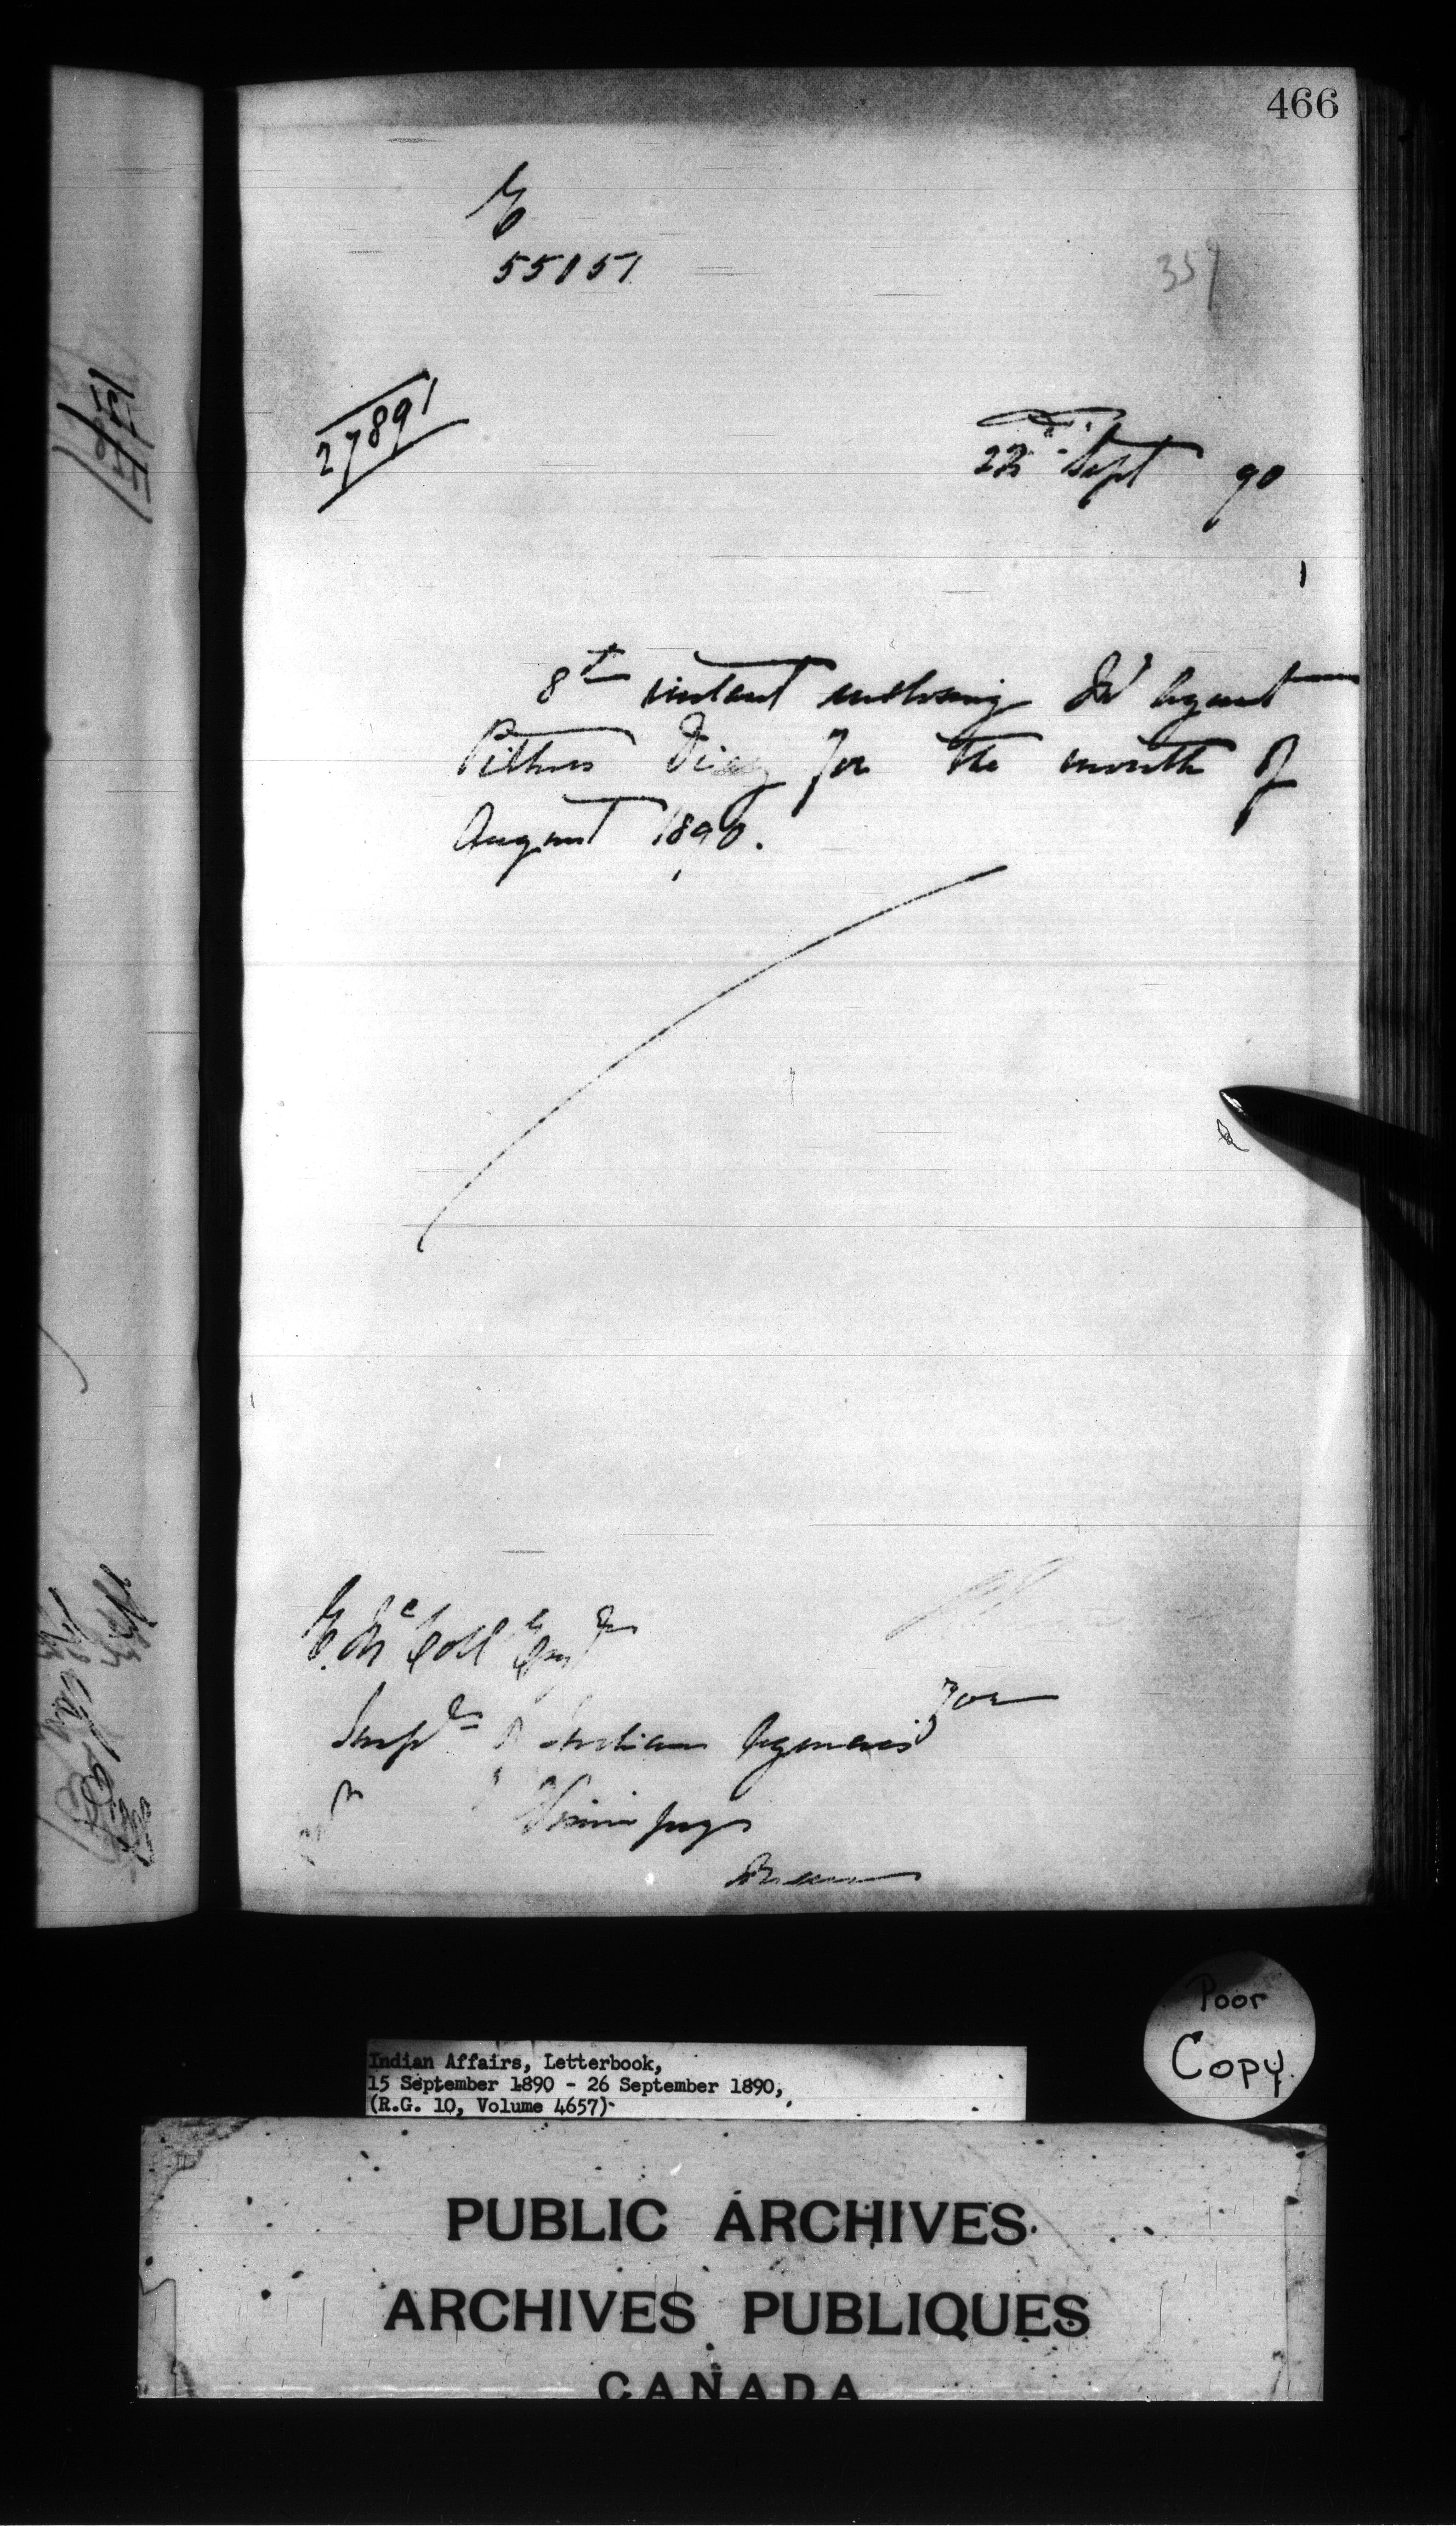 466
E
55151
351
27891
22nd Sept 90
8th instant enclosing Ind Agent
Pithers Diary for the month of
August 1890.
E. McColl Esqre
for
Inspr of Indian Agencies
Winnipeg
Man
Poor
Copy.
Indian Affairs, Letterbook,
15 September 1890 - 26 September 1890,
(R.G. 10, Volume 4657)
PUBLIC ARCHIVES
ARCHIVES PUBLIQUES
CANADA